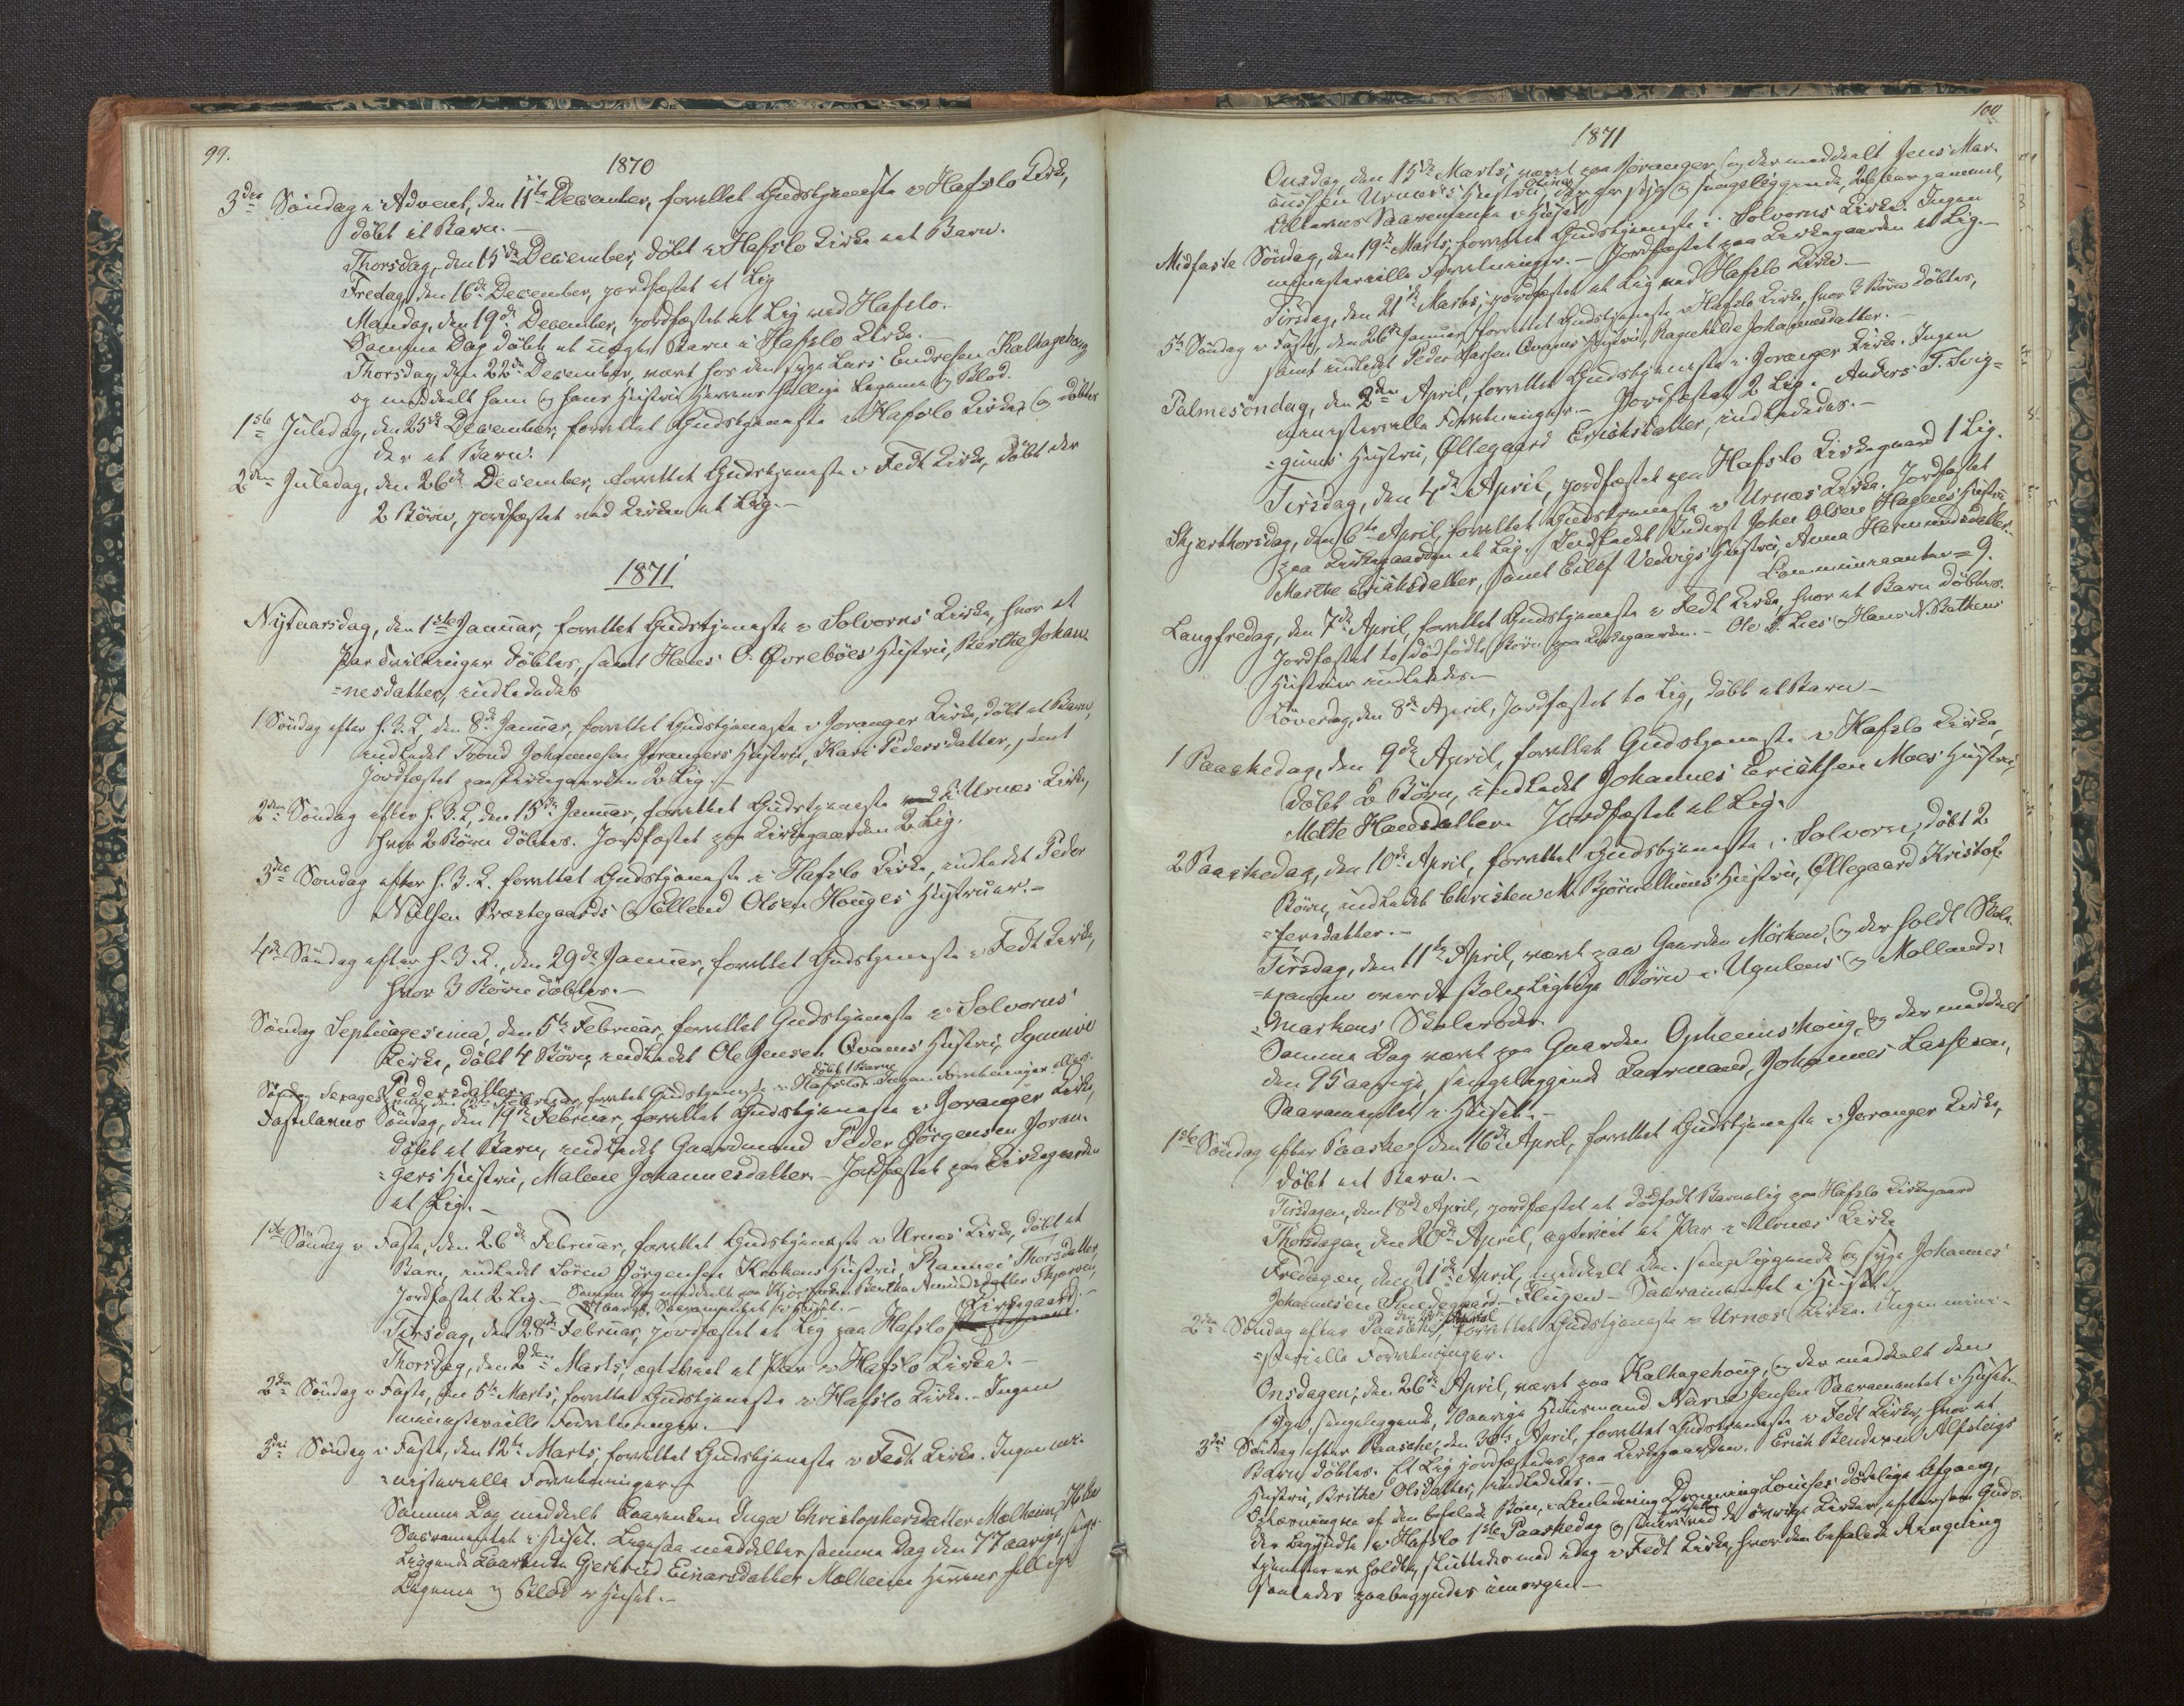 99.
1870
3die Söndag i Advent, den 11te December, forrettet Gudstjeneste i Hafslo Kirke,
döbt et Barn.-
Thorsdag, den 15de December, döbt i Hafslo Kirke et Barn.
Fredag, den 16de December, jordfæstet et Lig
Mandag, den 19de December, jordfæstet et Lig ved Hafslo.
Samme Dag döbt et uægte Barn i Hafslo Kirke.
Thorsdag, den 22de December, været hos den syge Lars Endresen Kalhagehoug
og meddelt ham og hans Hustru Herrens hellige Legeme og Blod.
1ste Juledag, den 25de December, forrettet Gudstjeneste i Hafslo Kirke og döbtes
der et Barn.
2den Juledag, den 26de December, forrettet Gudstjeneste i Fedt Kirke, döbt der
2 Börn, jordfæstet ved Kirken et Lig.-
1871
Nytaarsdag, den 1ste Januar, forrettet Gudstjeneste i Solvorns Kirke, hvor et
Par Tvillinger döbtes, samt Hans O. Qvrebøes Hustru, Berthe Johan-
=nesdatter, indledede
1 Söndag efter h. 3. K, den 8de Januar, forrettet Gudstjeneste i Joranger Kirke, döbt et Barn,
indledet Trond Johannesen Jorangers Hustru, Kari Pedersdatter, samt
Jordfæstet paa Kirkegaarden 2 Lig.-
2den Söndag efter h. 3. K, den 15de Januar, forrettet Gudstjeneste i Urnes Kirke,
hvor 2 Börn döbtes. Jordfæstet paa Kirkegaarden 2 Lig.
3die Söndag efter h. 3. K. forrettet Gudstjeneste i Hafslo Kirke, indledet Peder
Nielsen Præstegaards og Ellend Olsen Houges Hustruer.-
4de Söndag efter h. 3. K., den 29de Januar, forrettet Gudstjeneste i Fedt Kirke,
hvor 3 Börn döbtes.-
Söndag Septuagesima, den 5te Februar, forrettet Gudstjeneste i Solvorns
Kirke, döbt 4 Börn, indledet Ole Jensen Qvams Hustru, Synneve
Pedersdatter.
döbt 1 Barn
Söndag Sexagesima, den 12te Februar, forrettet Gudstjeneste i Hafslo. Ingen Forretninger ellers.
Fastelavns Söndag, den 19de Februar, forrettet Gudstjeneste i Joranger Kirke,
döbt et Barn, indledet Gaardmand Peder Jörgensen Joran-
=gers Hustru, Malene Johannesdatter.- Jordfæstet paa Kirkegaarden
et Lig.-
1ste Söndag i Faste, den 26de Februar, forrettet Gudstjeneste i Urnes Kirke, döbt et
Barn, indledet Sören Jörgensen Krokens Hustru, Rannei Thorsdatter,
Jordfæstet 2 Lig.- Samme Dag meddelt paa Berthe Amundsdatter Skjerven,
Sacramentet i Huset.-
Tirsdag, den 28de Februar, jordfæstet et Lig paa Hafslo Kirkegaard.-
Thorsdag, den 2den Marts, ægteviet et Par i Hafslo Kirke.-
2den Söndag i Faste, den 5te Marts, forrettet Gudstjeneste i Hafslo Kirke.- Ingen
ministerielle Forretninger.-
3die Söndag i Faste, den 12te Marts, forrettet Gudstjeneste i Fedt Kirke. Ingen mi-
=nisterielle Forretninger.
Samme Dag meddelt Kaarenken Inga Christophersdatter Molheim,
Sacramentet i Huset. Ligesaa meddeltes samme Dag den 77 aarige, senge-
liggende Kaarenke Gjertrud Einarsdatter Molheim Herrens hellige
Legeme og Blod i Huset.-
100
1871
Onsdag, den 15de Marts, været paa Joranger og der meddelt Jens Mar-
Urnes's Hustru, der er syg og sengeliggende,
Alterens Sacramente i Huset.
Midfaste Söndag, den 19de Marts, forrettet Gudstjeneste i Solvorns Kirke. Ingen
ministerielle Forretninger.- Jordfæstet paa Kirkegaarden et Lig.-
Tirsdag, den 21de Marts, jordfæstet et Lig ved Hafslo Kirke-
5te Söndag i Faste, den 26de Januar, forrettet Gudstjeneste i Hafslo Kirke, hvor 3 Börn döbtes,
samt indledet Peder Larsen Qvams Hustru, Ragnhilde Johannesdatter.-
Palmesöndag, den 2den April, forrettet Gudstjeneste i Joranger Kirke. Ingen
ministerielle Forretninger.- Jordfæstet 2 Lig. Anders T. Svig=
=gums Hustru, Øllegaard Erichsdatter, indlededes.-
Tirsdag, den 4de April, jordfæstet paa Hafslo Kirkegaard 1 Lig.
Skjærthorsdag, den 6te April, forrettet Gudstjeneste i Urnes Kirke. Jordfæstet
paa Kirkegaarden et Lig. Indledet Inderst Johan Olsen Hagens Hustru
Marthe Erichsdatter, samt Eilef Vedvigs Hustru, Anna Hermundsdatter.
Communicanter = 9.
Langfredag, den 7de April, forrettet Gudstjeneste i Fedt Kirke, hvor et Barn döbtes.
Jordfæstet to dödfödte Börn paa Kirkegaarden.- Ole P. Lies og Hans N. Bathens
Hustruer indlededes.-
Löverdag, den 8de April, Jordfæstet to Lig, döbt et Barn-
1 Paaskedag, den 9de April, forrettet Gudstjeneste i Hafslo Kirke,
döbt 2 Börn, indledet Johannes Erichsen Moes Hustru,
Mette Hansdatter. Jordfæstet et Lig.
2 Paaskedag, den 10de April, forrettet Gudstjeneste i Solvorn, döbt 2
Börn, indledet Christen M. Bjørnethuns Hustru, Øllegaard Kristof-
=fersdatter.-
Tirsdag, den 11te April, været paa Gaarden Mörken, og der holdt Skole-
over de skolepligtige Börn i Ugulens og Mollands-
=Markens Skolerode.
Samme Dag været paa Gaarden Opheimshoug, og der meddelt
den 95 aarige, sengeliggende Kaarmand, Johannes Lassesen,
Sacramentet i Huset.-
1ste Söndag efter Paaske, den 16de April, forrettet Gudstjeneste i Joranger Kirke,
döbt et Barn.-
Tirsdagen, den 18de April, jordfæstet et dödfödt Barnelig paa Hafslo Kirkegaard
Thorsdagen, den 20de April, ægteviet et Par i Urnes Kirke
Fredagen, den 21de April, meddelt den sengeliggende og syge Johannes
Johannesen Smedegaard- Flugen- Sacramentet i Huset.
2den Söndag efter Paaske, forrettet Gudstjeneste i Urnes Kirke. Ingen mini-
=sterielle Forretninger.
Onsdagen, den 26de April, været paa Kalhagehoug, og der meddelt den
syge, sengeliggende, 70 aarige Huusmand Jensen Sacramentet i Huset.
3die Söndag efter Paaske, den 30te April, forrettet Gudstjeneste i Fedt Kirke, hvor et
Barn döbtes. Et Lig jordfæstedes paa Kirkegaarden. Erich Bendixen Alsteigs
Hustru, Brithe Olsdatter, indlededes.-
af den befalede Bön, i Anledning Dronning Louises dödelige Afgang,
der begyndte i Hafslo 1ste Paaskedag og senere ved de övrige Kirker, eftersom Guds-
tjenesterne holdtes, sluttedes med idag i Fedt Kirke, hvor den befalede Ringning
saaledes paabegyndes imorgen-